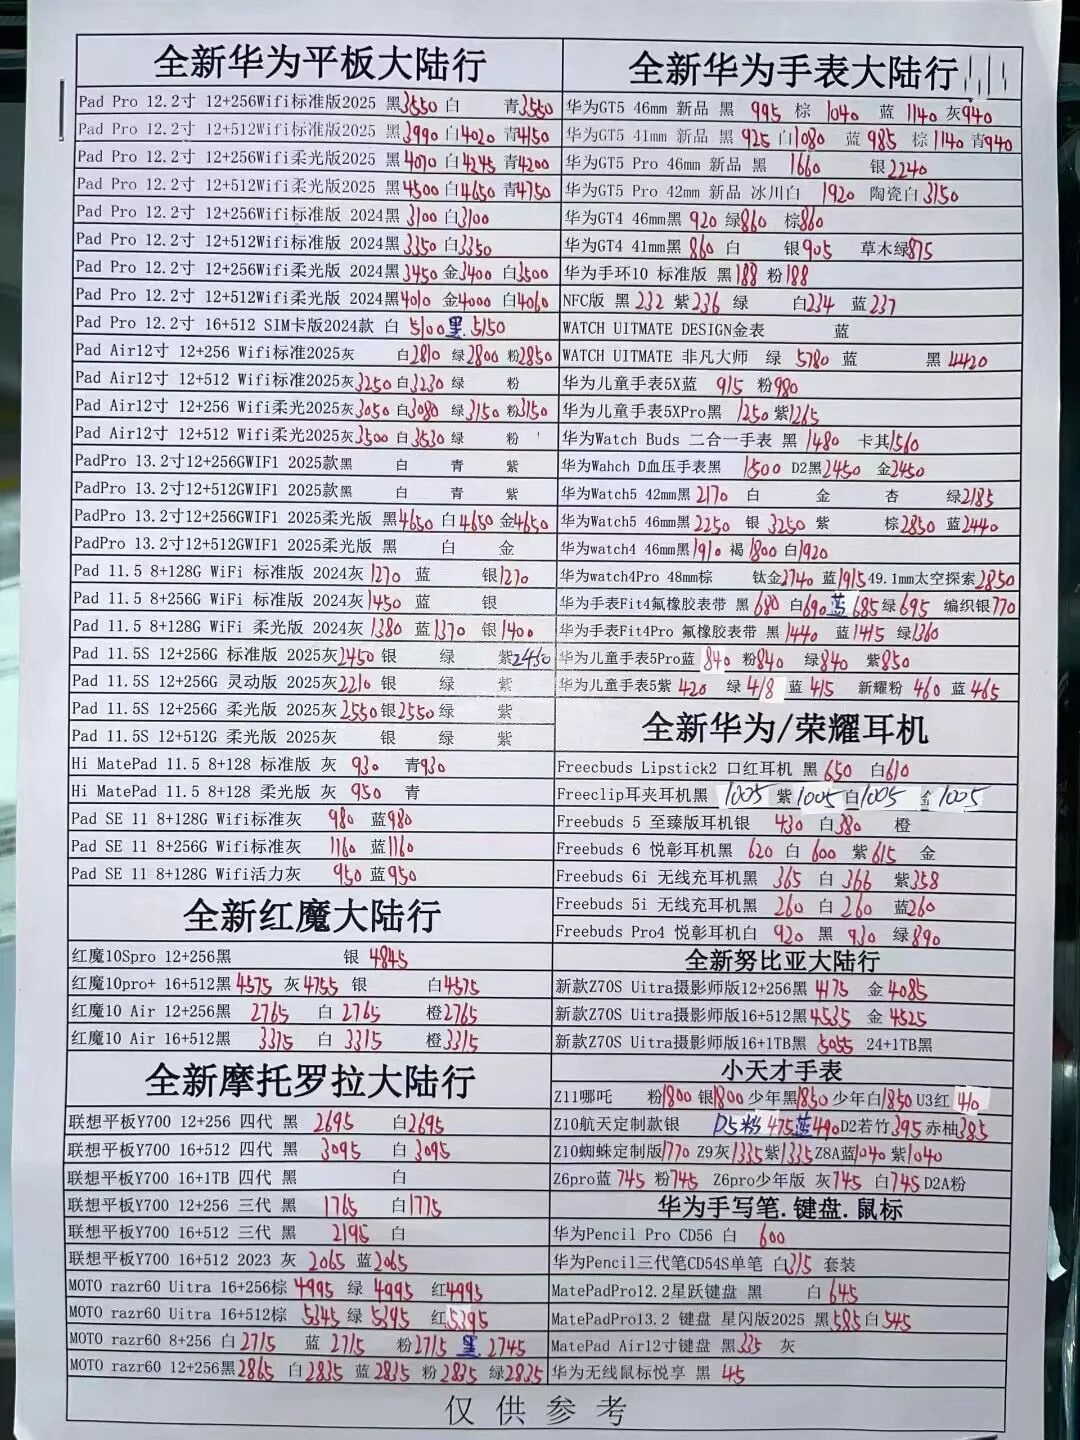 全新华为平板大陆行
Pad Pro 12.2寸 12+256Wifi标准版2025 黑3550 白 青3550
Pad Pro 12.2寸 12+512Wifi标准版2025 黑3990 白4020 青4150
Pad Pro 12.2寸 12+256Wifi柔光版2025 黑4070 白4245 青4200
Pad Pro 12.2寸 12+512Wifi柔光版2025 黑4500 白4650 青4750
Pad Pro 12.2寸 12+256Wifi标准版 2024 黑3100 白3100
Pad Pro 12.2寸 12+512Wifi标准版 2024 黑3350 白3350
Pad Pro 12.2寸 12+256Wifi柔光版 2024黑3450 金3400 白3500
Pad Pro 12.2寸 12+512Wifi柔光版 2024黑4010 金4000 白4060
Pad Pro 12.2寸 16+512 SIM卡版2024款 白 5100 黑 5150
Pad Air12寸 12+256 Wifi标准2025灰 白2810 绿2800 粉2850
Pad Air12寸 12+512 Wifi标准2025灰3250 白3230 绿 粉
Pad Air12寸 12+256 Wifi柔光2025灰3050 白3080 绿3150 粉3150
Pad Air12寸 12+512 Wifi柔光2025灰3500 白3530 绿 粉
PadPro 13.2寸12+256GWIF1 2025款黑 白 青 紫
PadPro 13.2寸12+512GWIF1 2025款黑 白 青 紫
PadPro 13.2寸12+256GWIF1 2025柔光版 黑4650 白4650 金4650
PadPro 13.2寸12+512GWIF1 2025柔光版 黑 白 金
Pad 11.5 8+128G WiFi 标准版 2024灰 1270 蓝 银1270
Pad 11.5 8+256G WiFi 标准版 2024灰1450 蓝 银
Pad 11.5 8+128G WiFi 柔光版 2024灰1380 蓝1370 银1400
Pad 11.5S 12+256G 标准版 2025灰2450 银 绿 紫2450
Pad 11.5S 12+256G 灵动版 2025灰2210 银 绿 紫
Pad 11.5S 12+256G 柔光版 2025灰2550 银2550 绿 紫
Pad 11.5S 12+512G 柔光版 2025灰 银 绿 紫
Hi MatePad 11.5 8+128 标准版 灰 930 青930
Hi MatePad 11.5 8+128 柔光版 灰 950 青
Pad SE 11 8+128G Wifi标准灰 980 蓝980
Pad SE 11 8+256G Wifi标准灰 1160 蓝1160
Pad SE 11 8+128G Wifi活力灰 950 蓝950
全新红魔大陆行
红魔10Spro 12+256黑 银 4845
红魔10pro+ 16+512黑4575 灰4755 银 白4575
红魔10 Air 12+256黑 2765 白 2765 橙2765
红魔10 Air 16+512黑 3315 白 3315 橙3315
全新摩托罗拉大陆行
联想平板Y700 12+256 四代 黑 2695 白2695
联想平板Y700 16+512 四代 黑 3095 白 3095
联想平板Y700 16+1TB 四代 黑 白
联想平板Y700 12+256 三代 黑 1765 白1775
联想平板Y700 16+512 三代 黑 2195 白
联想平板Y700 16+512 2023 灰 2065 蓝2065
MOTO razr60 Uitra 16+256棕 4995 绿 4995 红4995
MOTO razr60 Uitra 16+512棕 5345 绿 5395 红5395
MOTO razr60 8+256 白2715 蓝 2715 粉2715 黑 2745
MOTO razr60 12+256黑2865 白2835 蓝 2835 粉 2835 绿2835
全新华为手表大陆行
华为GT5 46mm 新品 黑 995 棕 1040 蓝 1140 灰940
华为GT5 41mm 新品 黑 925 白1080 蓝 985 棕 1140 青940
华为GT5 Pro 46mm 新品 黑 1660 银2240
华为GT5 Pro 42mm 新品 冰川白 1920 陶瓷白3150
华为GT4 46mm黑 920 绿860 棕860
华为GT4 41mm黑 860 白 银905 草木绿875
华为手环10 标准版 黑188 粉188
NFC版 黑 232 紫236 绿 白234 蓝 237
WATCH UITMATE DESIGN金表 蓝
WATCH UITMATE 非凡大师 绿 5780 蓝 黑 4420
华为儿童手表5X蓝 915 粉980
华为儿童手表5XPro黑 1250 紫1265
华为Watch Buds 二合一手表 黑 1480 卡其1560
华为Wahch D血压手表黑 1500 D2黑2450 金2450
华为Watch5 42mm黑2170 白 金 杏 绿2185
华为Watch5 46mm黑2250 银 3250 紫 棕2850 蓝2440
华为watch4 46mm黑1910 褐1800 白1920
华为watch4Pro 48mm棕 钛金2740 蓝1915 49.1mm太空探索2850
华为手表Fit4氟橡胶表带 黑 680 白690 蓝 685 绿 695 编织银770
华为手表Fit4Pro 氟橡胶表带 黑 1440 蓝1415 绿1360
华为儿童手表5Pro蓝 840 粉840 绿840 紫850
华为儿童手表5紫 420 绿 418 蓝 415 新耀粉 460 蓝 465
全新华为/荣耀耳机
Freecbuds Lipstick2 口红耳机 黑 650 白610
Freeclip耳夹耳机黑 1005 紫1005 白1005 金1005
Freebuds 5 至臻版耳机银 430 白380 橙
Freebuds 6 悦彰耳机黑 620 白 600 紫615 金
Freebuds 6i 无线充耳机黑 365 白 366 紫358
Freebuds 5i 无线充耳机黑 260 白 260 蓝260
Freebuds Pro4 悦彰耳机白 920 黑 930 绿890
全新努比亚大陆行
新款Z70S Uitra摄影师版12+256黑 4175 金4085
新款Z70S Uitra摄影师版16+512黑4535 金 4525
新款Z70S Uitra摄影师版16+1TB黑 5055 24+1TB黑
小天才手表
Z11哪吒 粉1800 银1800 少年黑1850 少年白1850 U3红 410
Z10航天定制款银 D5粉 475 蓝490 D2若竹395 赤柚385
Z10蜘蛛定制版1770 Z9灰1335 紫1335 Z8A蓝1040 紫1040
Z6pro蓝 745 粉745 Z6pro少年版 灰745 白745 D2A粉
华为手写笔.键盘.鼠标
华为Pencil Pro CD56 白 600
华为Pencil三代笔CD54S单笔 白315 套装
MatePadPro12.2星跃键盘 黑 白 645
MatePadPro13.2 键盘 星闪版2025 黑585 白 545
MatePad Air12寸键盘 黑335 灰
华为无线鼠标悦享 黑 45
仅供参考